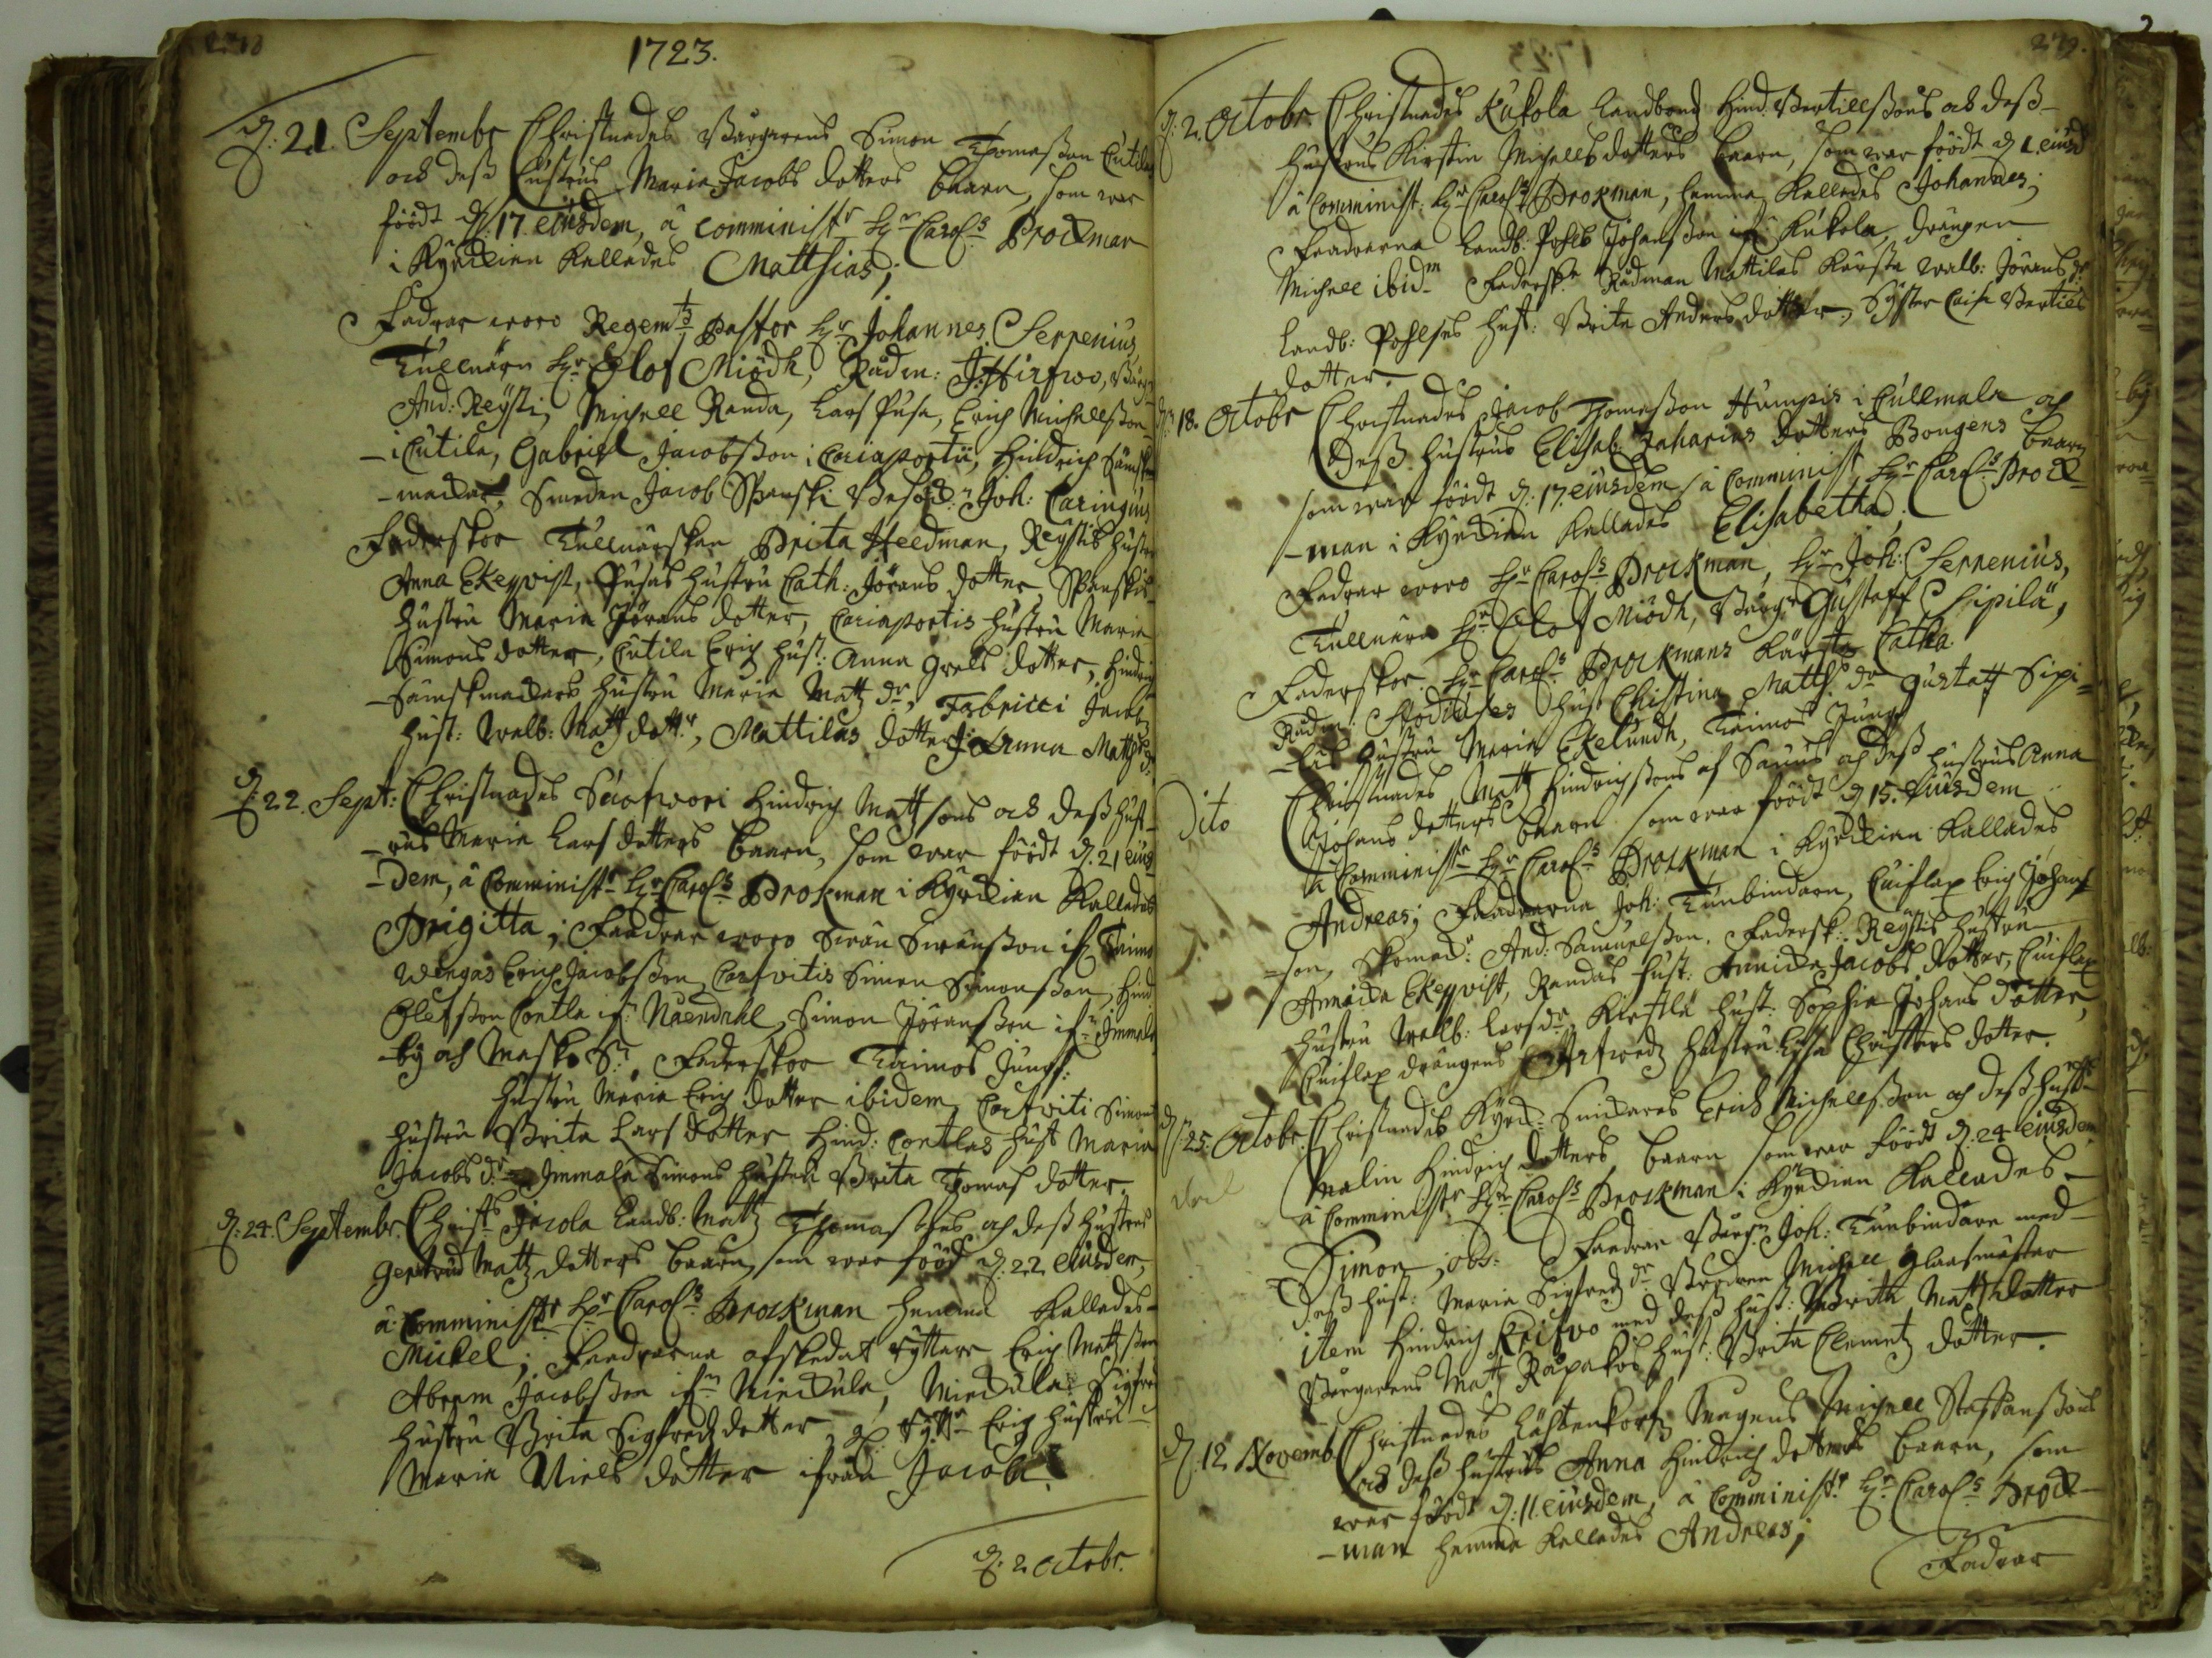 278
1723.
d: 21. Septembr Christnades Borgarens Simon Thomasson Cutilas
och dess hustrus Maria Jacobs dotters baarn, som war
föödt d. 17. eiusdem, à Comministr Hr Carols Brockman
i Kyrckian kallades Matthias;
Fadrar woro Regemts Pastor Hr Johannes Serpenius
Tullnären Hr Elof Miödh, Rådm: J. Hirfwo, Borg
And: Reysti, Michell Randa, Lars Pusa, Erich Michellsson
i Cutila, Gabriel Jacobsson i Cariaportti, Hindrich Sämsk
-mackar, Smeden Jacob Spanski Joh: Caringius
Fadrskor Tullnärskan Brita Heedman, Reystis hustru
Anna Ekeqvist, Pusas hustru Cath: Jörans dotter, Spanskis
hustru Maria Jörans dotter, Cariaportis hustru Maria
Simons dotter, Cutila Erich hust: Anna Grels dotter, Hindrich
Sämskmackars hustru Maria Matz dr, Fabricci Jacobs
hust: Walb: Matz dottr, Mattilas dotter J. Anna Matz dr
d: 22. Sept: Christnades Hindrich Mattsons och dess hust-
-rus Maria Lars dotters baarn, som war föödt d. 21 eius
-dem, à Comministr Hr Carols Brokman i Kyrckian kallades
Brigitta; Faadrar woro Swän Swänsson if: Taimo
Erich Jacobsson, Simon Simonsson, Hind:
Olofsson Contla if: Näendahl, Simon Jöransson ifr Immala
-by och Faderskor Taimos Jungf:
hustru Maria Erich dotter ibidem, Simons
hustru Brita Lars dotter Hind: Contlas hust Maria
Jacobs dr Immala Simons hustru Brita Thomas dotter.
d: 24. Septembr. Christs Jacola Landb: Matz Thomassons och dess hustrus
Gertrud Matz dotters baarn, som war föödt d: 22. eiusdem,
à Comministr Hr Carols Brockman hemma kallades
Mickel; Faadrarna afskedat ryttare Erich Mattsson
Abram Jacobsson ifrn Nieckula, Nieckula Sigfre
hustru Brita Sigfredz dotter, Ryttr Erich hustru
Maria Niels dotter ifrån Jacola.
d: 2 octobr.
279.
d: 2. Octobr. Christnades Kukola Landbond Hind: Bertillssons och dess
hustrus Kirstin Michells dotters baarn, som war föödt d 1. eiusd
à Comminist: Hr Carols Brokman, hemma kallades Johannes;
Faadrarna Landb: Pohls Johansson if: Kukola, Drängen
Michell ibidm Fadersk: Rådman Mattilas Kärsta Walb: Jörans dr
Landb: Pohlses hust: Brita Anders dotter, Syster Caisa Bertils
dotter.
d: 18. Octobr Christnades Jacob Thomasson Humpis i Cullmala och
dess hustrus Elisab: Zacharias dotters Bongens baarn
som war föödt d: 17. eiusdem, à Comminist Hr Carols Brock
-man i Kyrckian kallades Elisabetha;
Fadrar woro Hr Carols Brockman, Hr Joh: Serpenius,
Tullnären Hr Elof Miödh, Borgr Gustaff Sipilä,
Faderskor Hr Carols Brockmans Kärsta Catha
Rådm: Stodiuses Hust Christina Matth: dr Gustaff Sipi-
-läs hustru Maria Ekelundh, Taimos Jungf
Dito Christnades Matz Hindrichssons af Saaus och dess hustrus Anna
Johans dotters baarn som war föödt d 15. eiusdem
à Comministr Hr Carols Brockman i Kyrckian kallades
Andreas; Faadrarna Joh: Tunbindarn, Cuiflax Erich Johans
-son, Skomack: And: Samuelsson. Fadersk: Reystis hustru
Annicka Ekeqvist, Randas hust: Annicka Jacobs dotter, Cuiflax
hustru Walb: Lars dr Kirstlä hust: Sophia Johans dotter,
Cuiflax drängens hustru Lisa Christers dotter.
d: 25. Octobr. Christnades Kyrck: Erich Michellsson och dess hustrus
Malin Hindrich dotters baarn som war föödt d. 24 eiusdem
à Comministr Hr Carols Brockman i Kyrckian kallades
Simon, obs: Faadrar Borgr Joh: Tunbindare med
dess hust: Maria Sigfredz dr Michell glaasmästar
item Hindrich Krifwo med dess hust: Brita Matz dotter
Borgarens Matz Räpakos hust: Brita Clemetz dotter.
d. 12 Novemb. Christnades Magnus Michell Staffanssons
och dess hustrus Anna Hindrich dotters baarn, som
war föödt d: 11. eiusdem, à Comministr Hr Carols Brock
-man hemma kallades Andreas;
Fadrar